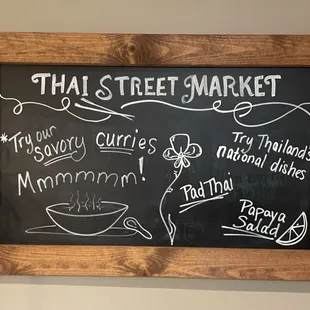 THAI STREET MARKET
*Try our
savory curries
Mmmmmm!
Try Thailand's
national dishes
Pad Thai
Papaya
Salad